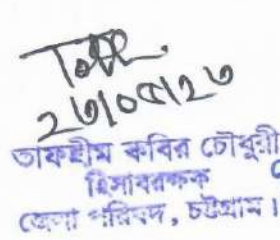 ২৩/০৫/২৩
তাফহীম কবির চৌধুরী
হিসাবরক্ষক
জেলা পরিষদ, চট্টগ্রাম।